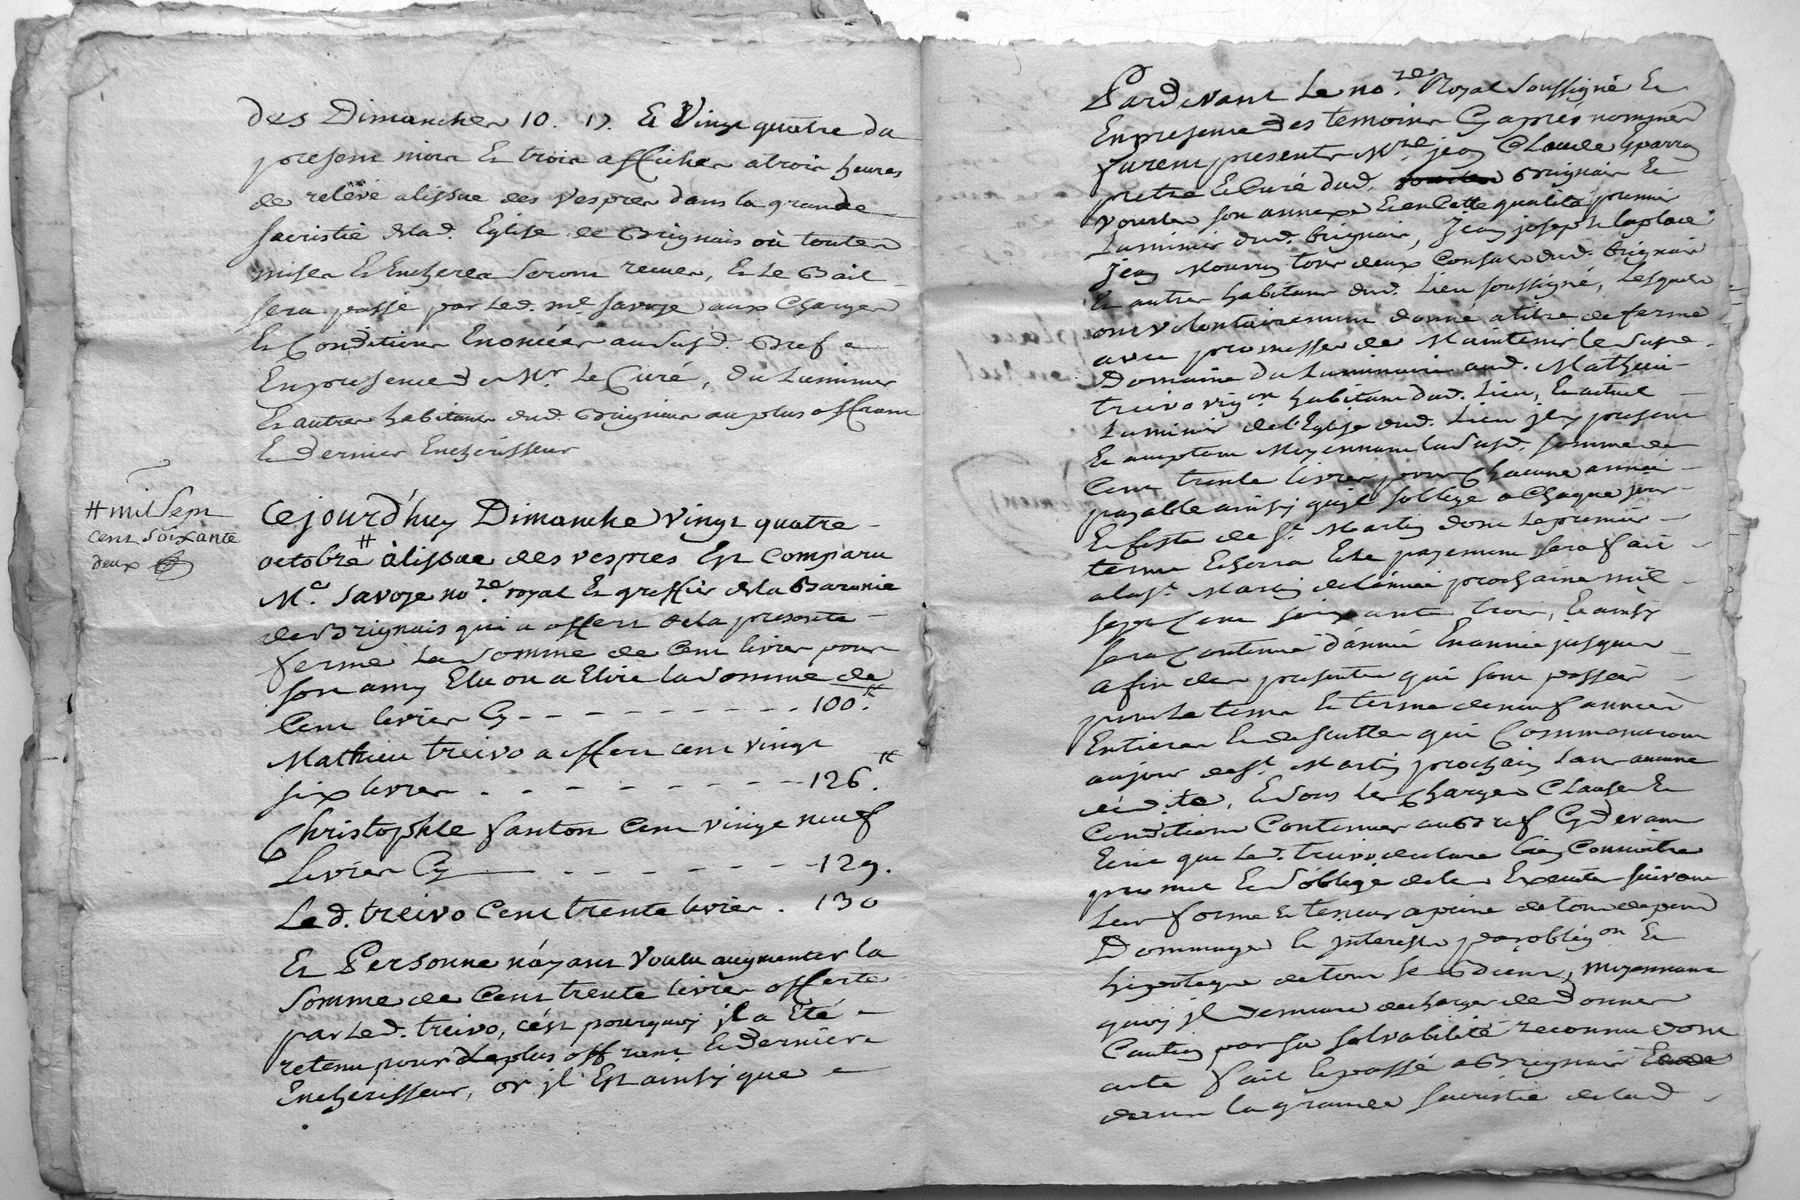 des Dimanches 10. 17. Et Vingt quatre du
present mois Et trois affiches a trois heures
de relevé a lissue des vespres dans la grande
sacristie de lad. Eglise de Brignais où toutes
mises Et Encheres seront receues, Et Le Bail
sera passé par Led. me Savoye aux Charges
Et Conditions Enoncées au susd. Bref
En presence de Mr Le Curé, du Luminier
Et autres habitants dud. Brignais au plus offrant
Et Dernier Encherisseur
# mil sept
cent soixante
deux
Cejourd'huy Dimanche vingt quatre
octobre # à lissue des vespres Est comparu
Me. Savoye nore. royal Et greffier de la Baronie
de Brignais qui a offert de la presente
ferme La somme de Cent livres pour
son amy Elu ou a Elire la somme de
Cent livres Cy - - - - - - - - 100.#
Mathieu treivo a offert cent vingt
six livres - - - - - - - - 126.#
Christophle fanton Cent vingt neuf
Livres Cy - - - - - - 129.
Led. treivo Cent trente livres . 130
Et Personne n'ayant voulu augmenter la
somme de Cent trente livres offerte
par Led. treivo, c'est pourquoy jl a Eté
retenu pour Le plus offrant Et dernier
Encherisseur, or jl Est ainsy que
Pardevant Le nore. Royal soussigné Et
En presence des temoins Cy apres nommés
furent presents Mre jean Claude
pretre Et Curé dud. Brignais Et
Vourles son annexe Et en Cette qualité premier
Luminier dud. brignais, jean joseph Laplace
jean Mourry tous deux Consuls dud. brignais
Et autres habitants dud. Lieu soussignés, Lesquels
ont volontairement donné a titre de ferme
avec promesse de Maintenir le susd.
Domaine du Luminaire aud. Mathieu
treivo vigon habitant dud. Lieu, Et actuel
Luminier de l'Eglise dud. Lieu jcy present
Et acceptant Moyennant la susd. somme de
Cent trente livres pour Chacune année
payable ainsy qu'jl s'oblige a Chaque jour
Et feste de St. Martin dont Le premier
terme Echerra Et Le payement sera fait
a la St. Martin de l'année prochaine mil
sept Cent soixante trois, Et ainsy
sera Continué d'année En année jusques
a fin des presentes qui sont passées
pour Le tems Et terme de neuf années
Entieres Et de suittes qui Commenceront
au jour de St. Martin prochain sans aucune
, Et sous Les Charges Clauses Et
Conditions Contenues au Bref Cy devant
Ecrit que Led. treivo declare bien Connoitre
promet Et s'oblige de les Executer suivant
Leur forme Et teneur a peine de tous depens
Dommages Et jnterests par obligon Et
hipoteque de tous ses Biens, moyennant
quoy jl demeure dechargé de donner
Caution par sa solvabilité reconnue dont
acte fait Et passé a Brignais
dans la grande sacristie de lad.